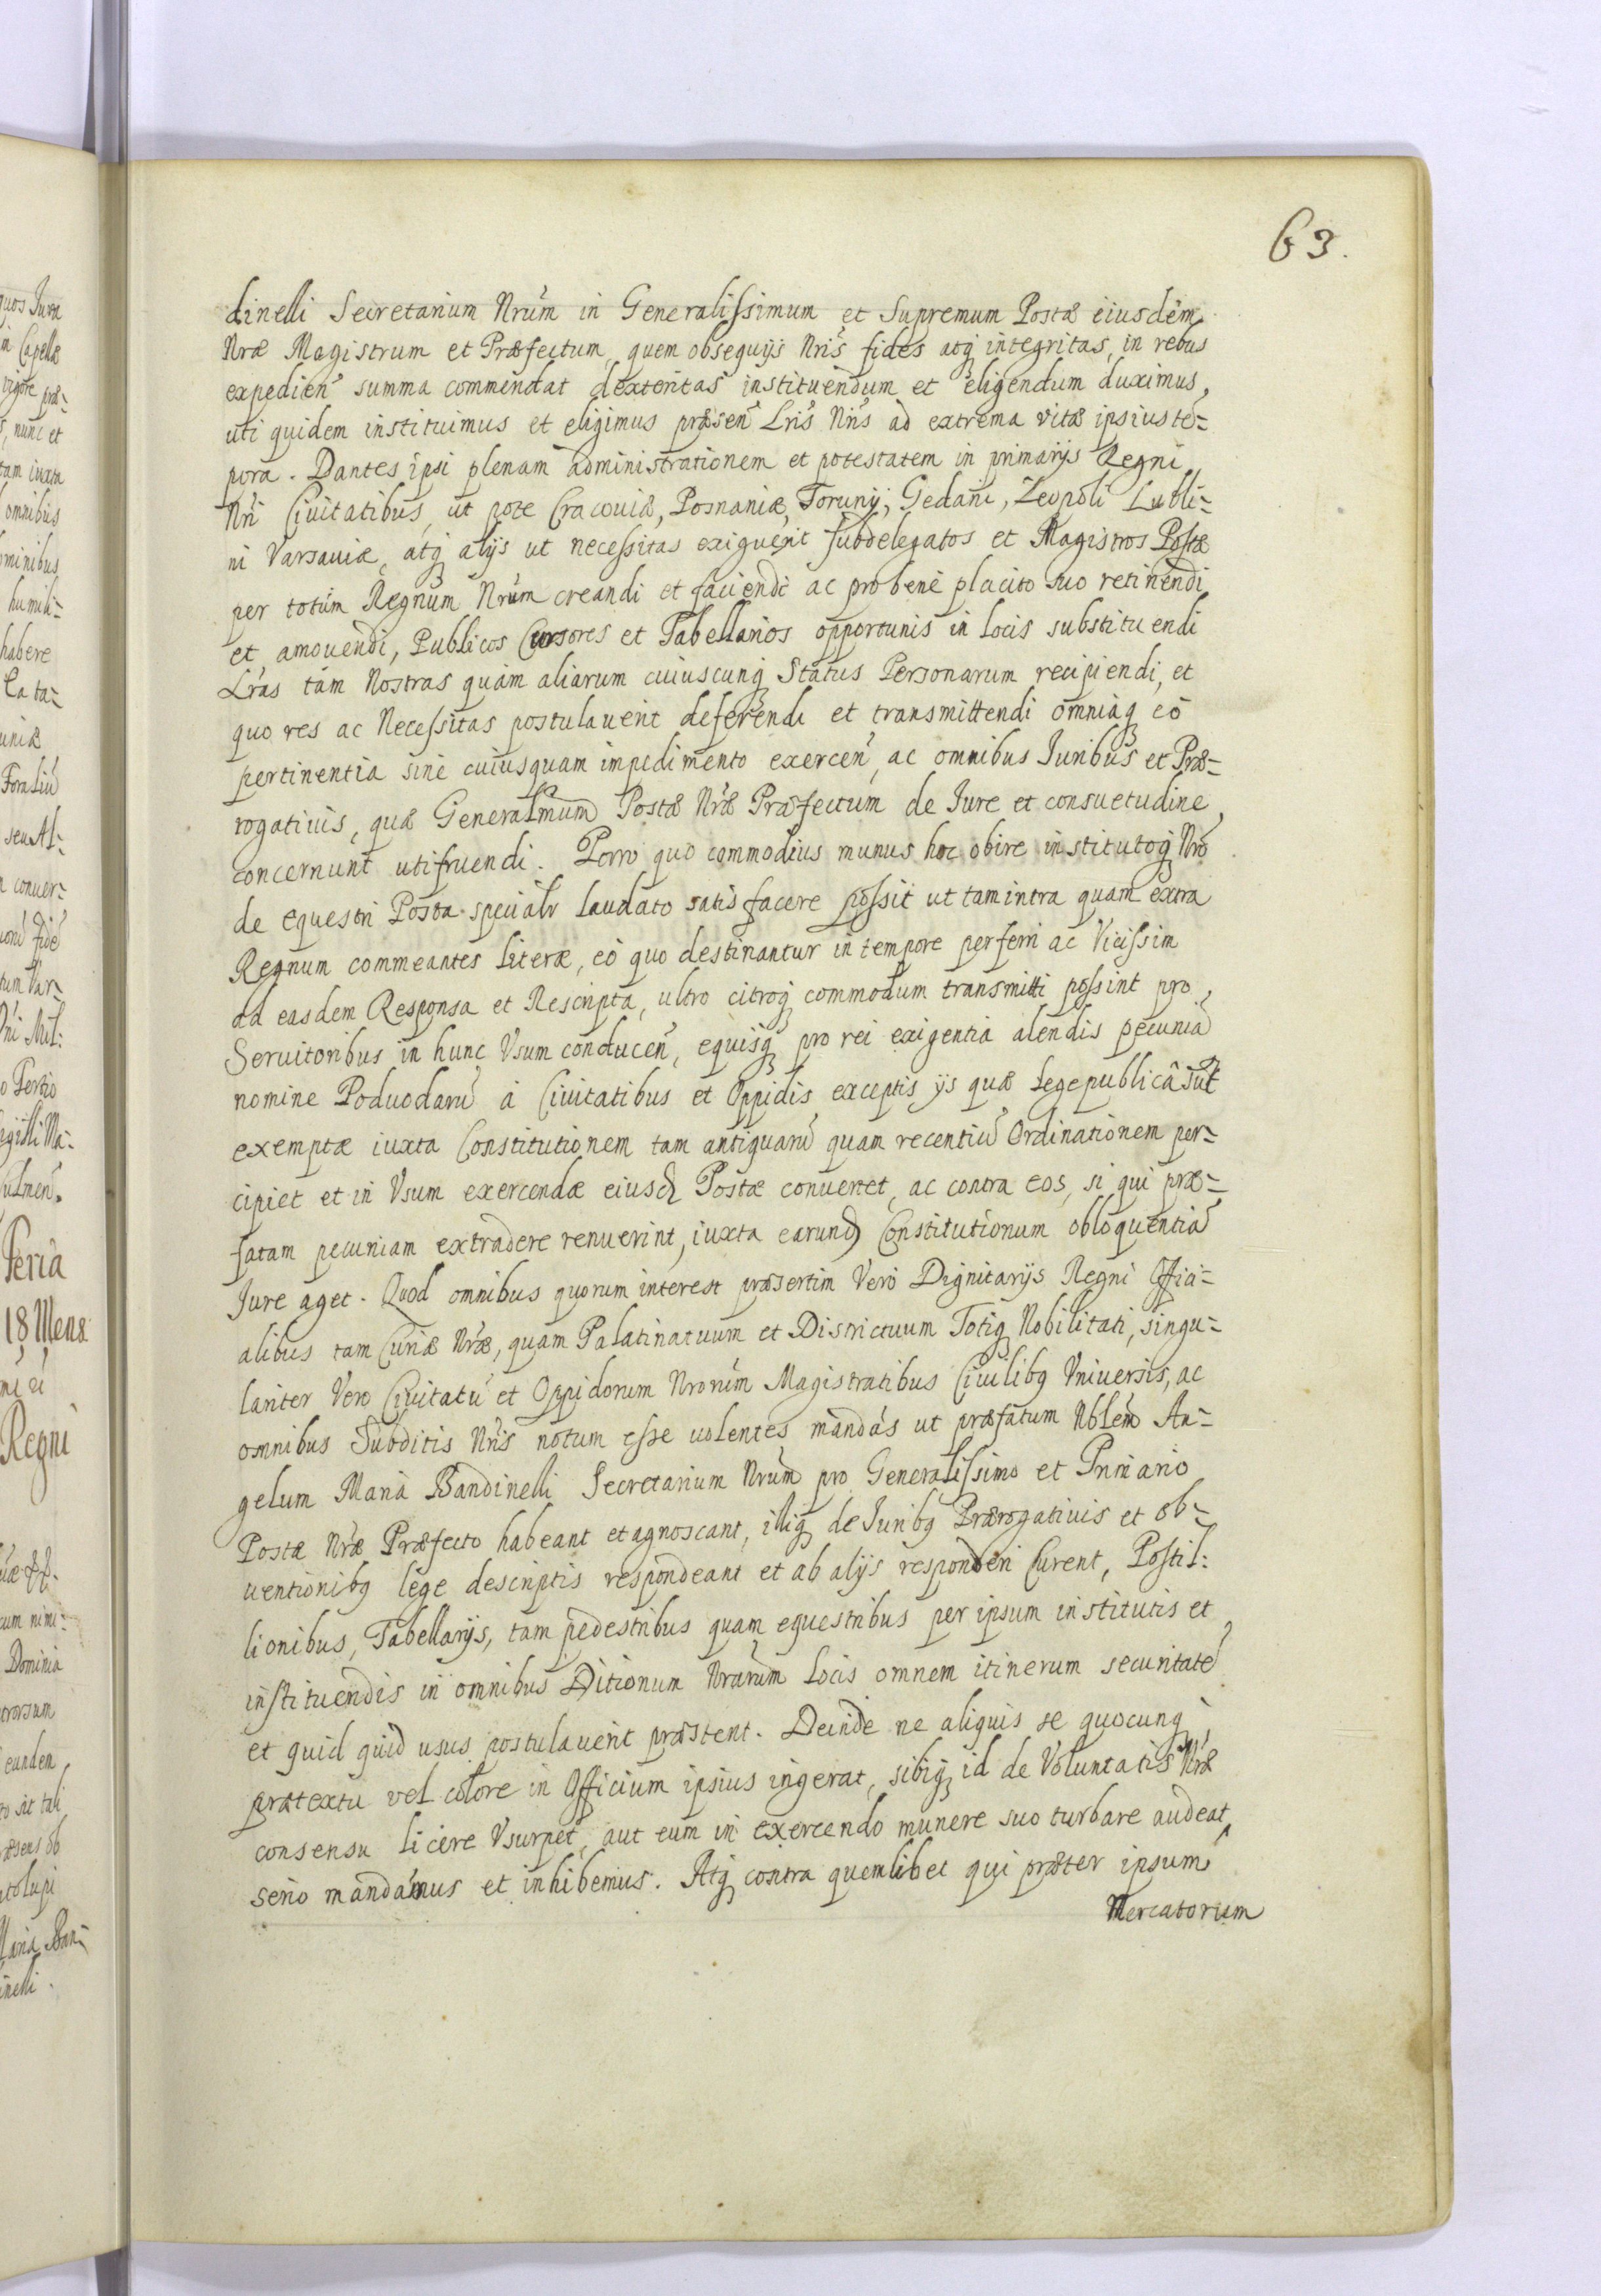 63.
dinelli Secretarium Nrum in Generalissimum et Supremum Postæ eiusdem
Nræ Magistrum et Præfectum, quem obsequijs Nris fides atq integritas, in rebus
expedien summa commendat dexteritas instituendum et eligendum duximus,
uti quidem instituimus et eligimus præsen Lris Nris ad extrema vitæ ipsius te-
pora. Dantes ipsi plenam administrationem et potestatem in primarijs Regni
Nri Ciuitatibus, ut pote Cracouiæ, Posnaniæ, Torunij, Gedani, Leopoli Lubli-
ni Varsauiæ, atq alijs ut necessitas exiguerit subdelegatos et Magistros Postæ
per totum Regnum Nrum creandi et faciendi ac pro bene placito suo retinendi
et amouendi, Publicos Cursores et Tabellarios opportunis in locis substituendi
Lras tam Nostras quam aliarum cuiuscunq Status Personarum recipiendi, et
quo res ac Necessitas postulauerit deferendi et transmittendi omniaq eò
pertinentia sine cuiusquam impedimento exercen, ac omnibus Iuribus et Præ-
rogatiuis, quæ Generalmum Postæ Nræ Præfectum de Iure et consuetudine
concernunt utifruendi. Porro quo commodius munus hoc obire institutoq Nro
de equestri Posta specialr laudato satis facere possit ut tam intra quam extra
Regnum commeantes literæ, eò quo destinantur in tempore perferri ac Vicissim
ad easdem Responsa et Rescripta, ultro citroq commodum transmitti possint pro
Seruitoribus in hunc Vsum conducen, equisq pro rei exigentia alendis pecunia
nomine Poduodaru à Ciuitatibus et Oppidis exceptis ijs quæ Lege publicâ sut
exemptæ iuxta Constitutionem tam antiquaru quam recentiu Ordinationem per-
cipiet et in Vsum exercendæ eiusd Postæ conuertet, ac contra eos, si qui præ-
fatam pecuniam extradere renuerint, iuxta earund Constitutionum obloquentia
Jure aget. Quod omnibus quorum interest præsertim Vero Dignitarijs Regni Offici-
alibus tam Curiæ Nræ, quam Palatinatuum et Districtuum Totiq Nobilitati, singu-
lariter Vero Ciuitatu et Oppidorum Nrorum Magistratibus Ciuilibq Vniuersis, ac
omnibus Subditis Nris notum esse uolentes mandas ut præfatum Nblem An-
gelum Maria Bandinelli Secretarium Nrum pro Generalissimo et Primario
Postæ Nræ Præfecto habeant et agnoscant, illiq de Iuribq Prærogatiuis et ob-
uentionibq lege descriptis respondeant et ab alijs responderi Curent, Postil:
lionibus, Tabellarijs, tam pedestribus quam equestribus per ipsum institutis et
instituendis in omnibus Ditionum Nrarum Locis omnem itinerum securitate
et quid quid usus postulauerit præstent. Deinde ne aliquis se quocunq
prætextu vel colore in Officium ipsius ingerat, sibiq id de Voluntatis Nræ
consensu licere Vsurpet, aut eum in exercendo munere suo turbare audeat
serio mandamus et inhibemus. Atq contra quemlibet qui præter ipsum
Mercatorum
quos Iura
in Capellæ
vigore præ-
nunc et
tam iuxta
omnibus
ominibus
humili-
habere
Foraliu
seu Al-
conuer-
Feria
18 Mens
Regni
cum nimi:
Dominia
trorsum
eunden
to sit tali
æsens ob
Maria Ban-
inelli.